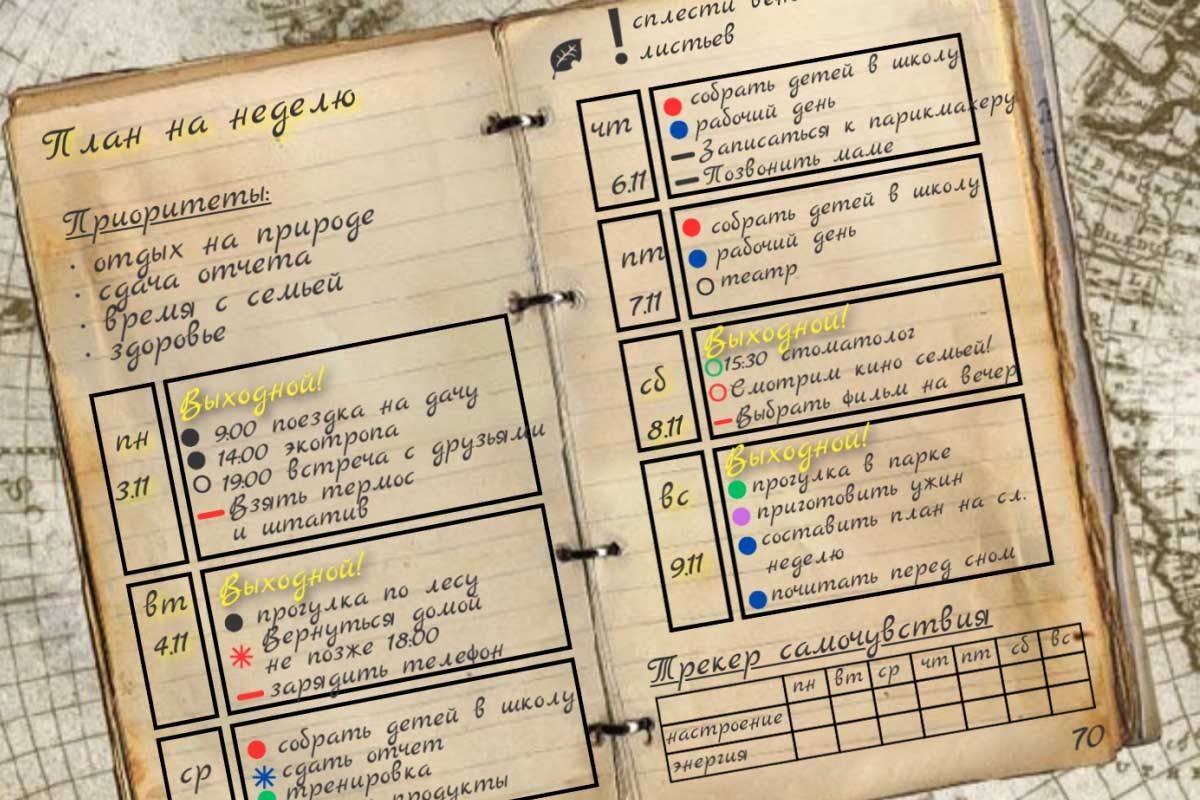 План на неделю
Приоритеты:
· отдых на природе
· сдача отчета
· время с семьей
· здоровье
пн
3.11
Выходной!
9:00 поездка на дачу
14:00 экотропа
19:00 встреча с друзьями
Взять термос
и штатив
вт
4.11
Выходной!
прогулка по лесу
Вернуться домой
не позже 18:00
зарядить телефон
ср
собрать детей в школу
сдать отчет
тренировка
продукты
! сплести
листьев
чт
6.11
собрать детей в школу
рабочий день
Записаться к парикмахеру
Позвонить маме
пт
7.11
собрать детей в школу
рабочий день
театр
сб
8.11
Выходной!
15:30 стоматолог
Смотрим кино семьей!
Выбрать фильм на вечер
вс
9.11
Выходной!
прогулка в парке
приготовить ужин
составить план на сл.
неделю
почитать перед сном
Трекер самочувствия
пн вт ср чт пт сб вс
настроение
энергия
70